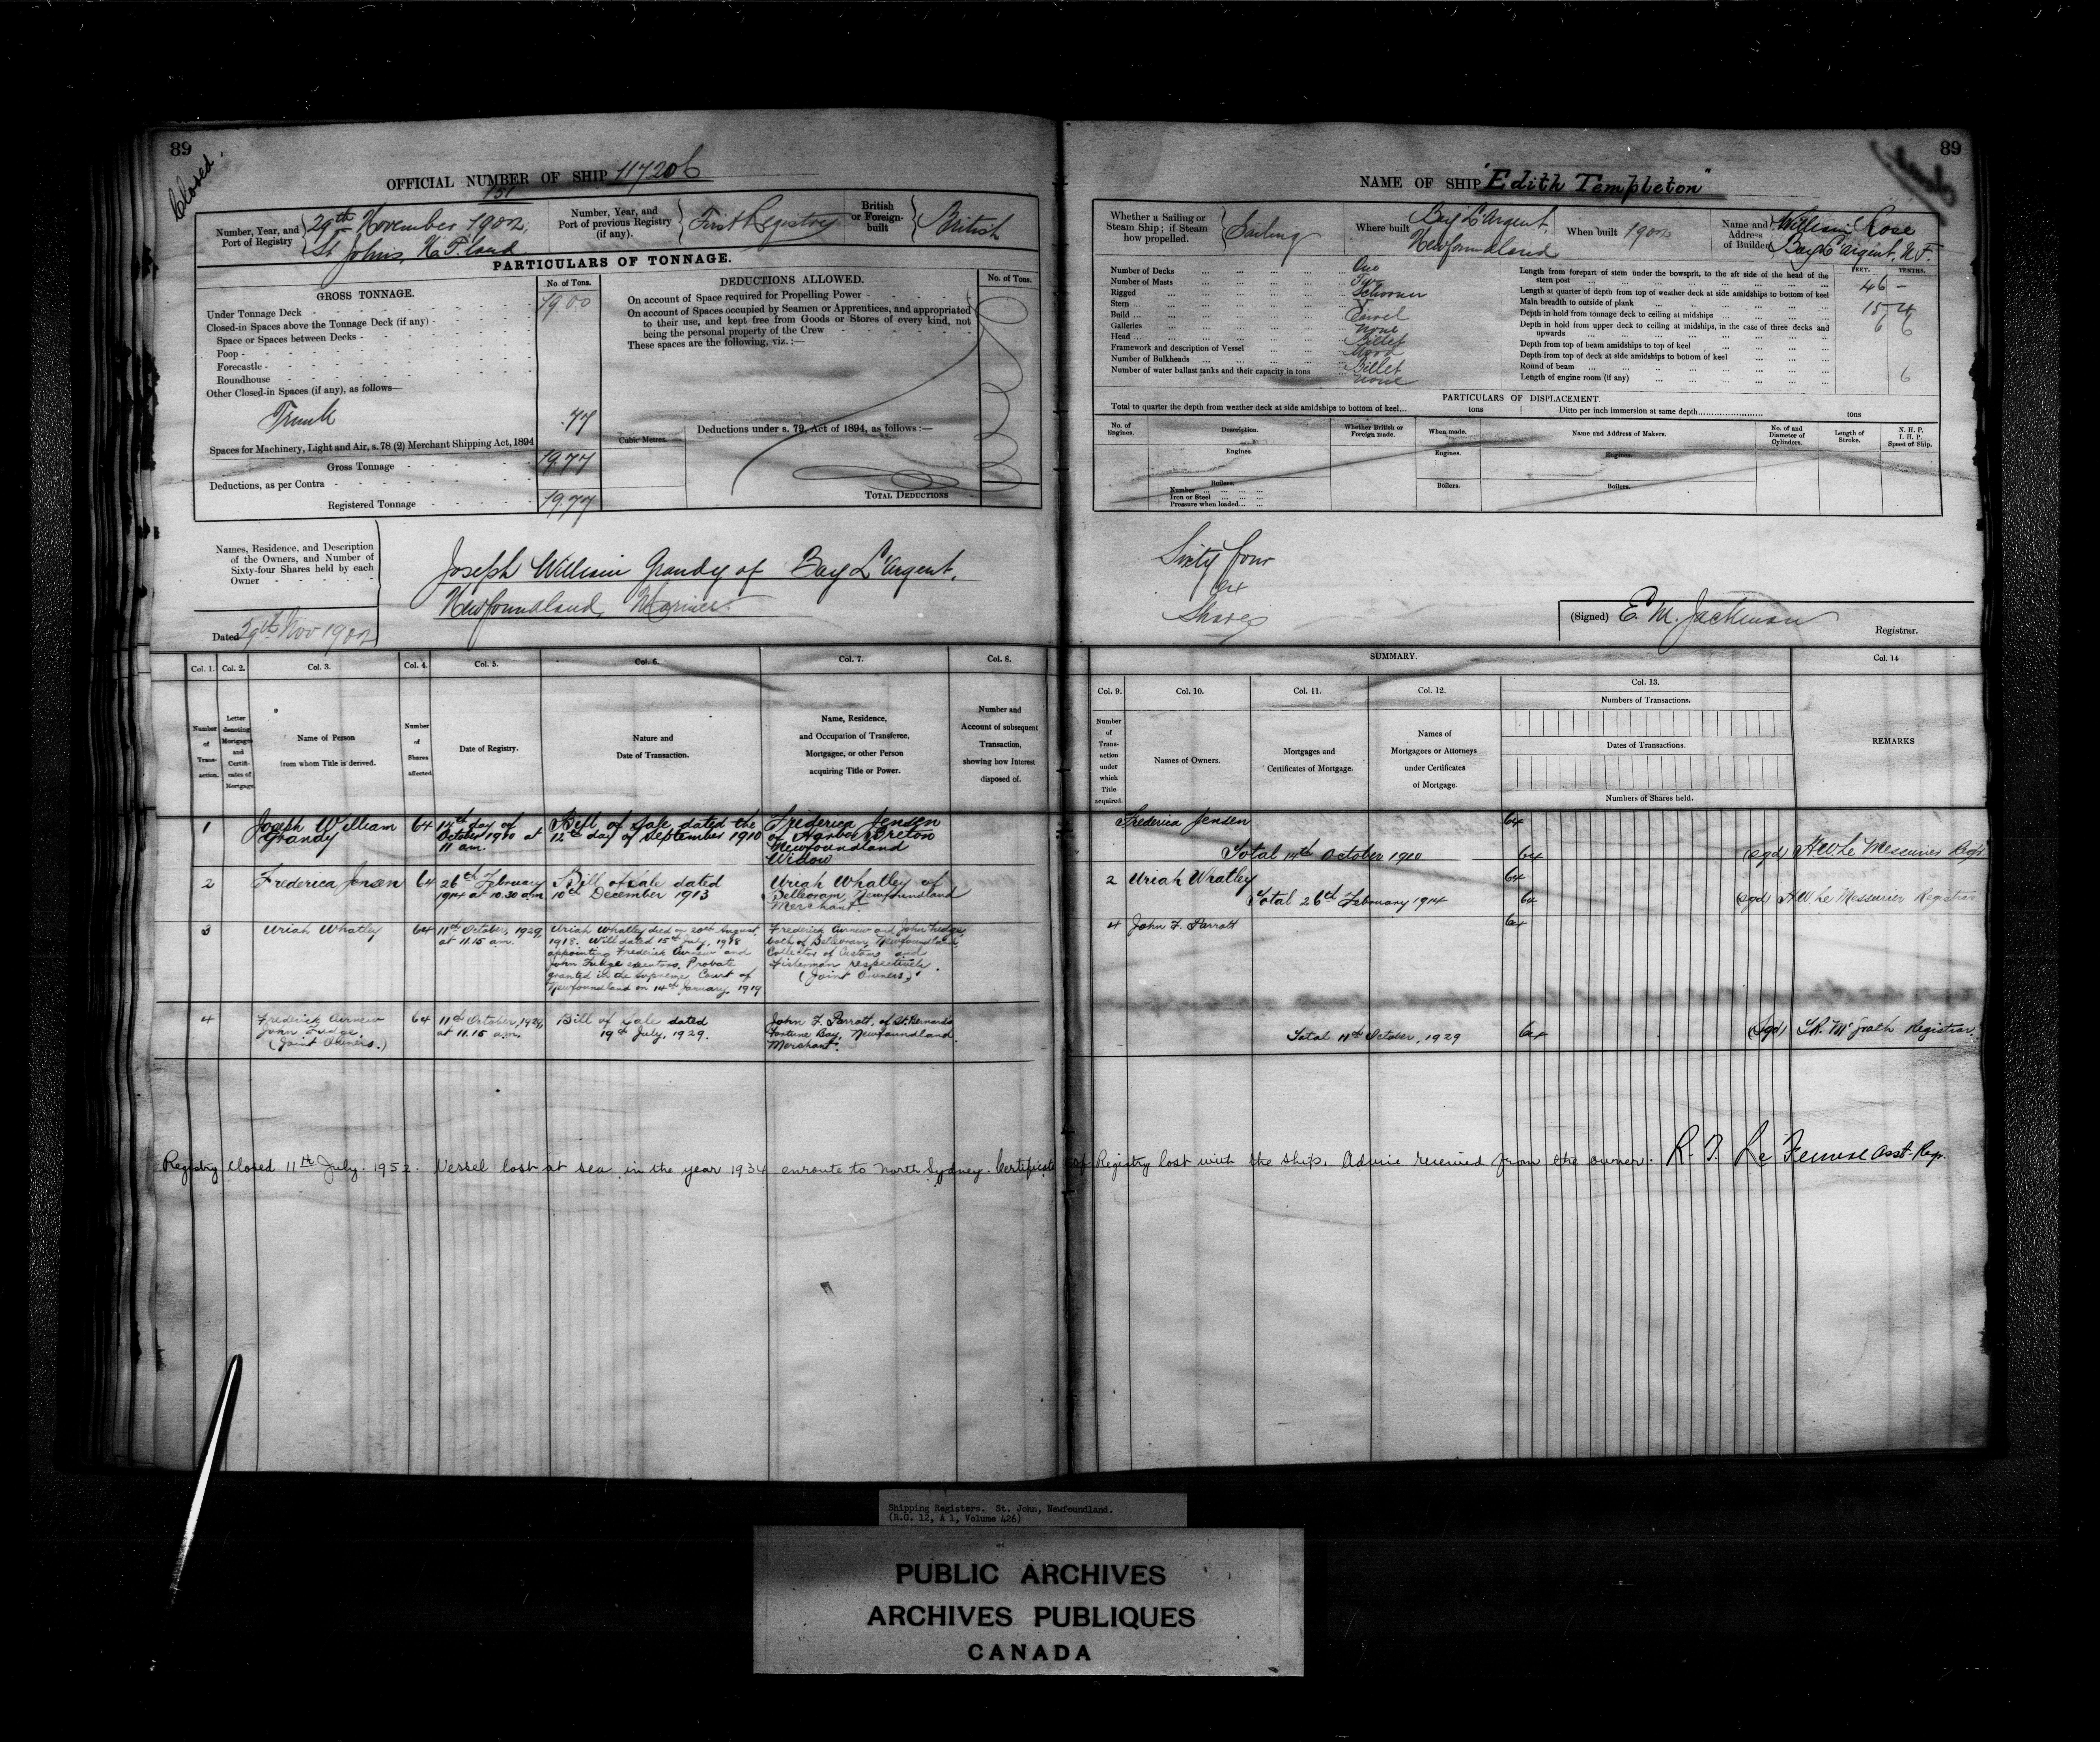 89
Closed.
OFFICIAL NUMBER OF SHIP 117206
151
Number, Year, and Port of Registry
29th November 1902,
St Johns, N.F.land
Number, Year, and Port of previous Registry (if any).
First Registry
British or Foreign-built
British
PARTICULARS OF TONNAGE.
GROSS TONNAGE.
No. of Tons.
Under Tonnage Deck
19.00
Closed-in Spaces above the Tonnage Deck (if any)
Space or Spaces between Decks
Poop
Forecastle
Roundhouse
Other Closed-in Spaces (if any), as follows—
Trunk
.77
Spaces for Machinery, Light and Air, s. 78 (2) Merchant Shipping Act, 1894
Gross Tonnage
19.77
Deductions, as per Contra
Registered Tonnage
19.77
DEDUCTIONS ALLOWED.
No. of Tons.
On account of Space required for Propelling Power
On account of Spaces occupied by Seamen or Apprentices, and appropriated
to their use, and kept free from Goods or Stores of every kind, not
being the personal property of the Crew
These spaces are the following, viz.:—
Cubic Metres.
Deductions under s. 79, Act of 1894, as follows:—
TOTAL DEDUCTIONS
Names, Residence, and Description
of the Owners, and Number of
Sixty-four Shares held by each
Owner
Dated 29th Nov 1902
Joseph William Grandy of Bay L'Argent,
Newfoundland, Mariner.
Col. 1.
Col. 2.
Col. 3.
Col. 4.
Col. 5.
Col. 6.
Col. 7.
Col. 8.
Number of Transaction.
Letter denoting Mortgages and Certificates of Mortgage.
Name of Person
from whom Title is derived.
Number of Shares affected.
Date of Registry.
Nature and
Date of Transaction.
Name, Residence,
and Occupation of Transferee,
Mortgagee, or other Person
acquiring Title or Power.
Number and
Account of subsequent
Transaction,
showing how Interest
disposed of.
1
Joseph William
Grandy
64
14th day of
October 1910 at
11 a.m.
Bill of Sale dated the
12th day of September 1910
Frederica Jensen
of Harbor Breton
Newfoundland
Widow
2
Frederica Jensen
64
26th February
1914 at 10.30 a.m.
Bill of Sale dated
10th December 1913
Uriah Whatley of
Belleoram, Newfoundland
Merchant.
3
Uriah Whatley
64
11th October, 1929,
at 11.15 a.m.
Uriah Whatley died on 20th August
1918. Will dated 15th July, 1918
appointing Frederick and
John Fudge executors. Probate
granted in the Supreme Court of
Newfoundland on 14th January, 1919
Frederick and John Fudge,
both of Belleoram, Newfoundland,
Collector of Customs and
Fisherman respectively.
(Joint Owners)
4
Frederick
John Fudge,
(Joint Owners.)
64
11th October, 1929,
at 11.15 a.m.
Bill of Sale dated
19th July, 1929.
John F. Parrott, of St. Bernards
Fortune Bay, Newfoundland
Merchant.
89
NAME OF SHIP "Edith Templeton"
Whether a Sailing or Steam Ship; if Steam how propelled.
Sailing
Where built
Bay L'Argent,
Newfoundland
When built 1902
Name and Address of Builder
William Rose
Bay L'argent, N.F.
Number of Decks
One
Number of Masts
Two
Rigged
Schooner
Stern
Build
Carvel
Galleries
none
Head
Billet
Framework and description of Vessel
Wood
Number of Bulkheads
Billet
Number of water ballast tanks and their capacity in tons
none
FEET.
TENTHS.
Length from forepart of stem under the bowsprit, to the aft side of the head of the
stern post
46 -
Length at quarter of depth from top of weather deck at side amidships to bottom of keel
Main breadth to outside of plank
15 4
Depth in hold from tonnage deck to ceiling at midships
6 6
Depth in hold from upper deck to ceiling at midships, in the case of three decks and
upwards
Depth from top of beam amidships to top of keel
Depth from top of deck at side amidships to bottom of keel
Round of beam
6
Length of engine room (if any)
PARTICULARS OF DISPLACEMENT.
Total to quarter the depth from weather deck at side amidships to bottom of keel... tons
Ditto per inch immersion at same depth tons
No. of Engines.
Description.
Whether British or Foreign made.
When made.
Name and Address of Makers.
No. of and Diameter of Cylinders.
Length of Stroke.
N. H. P. I. H. P. Speed of Ship.
Engines.
Engines.
Engines.
Boilers.
Number
Iron or Steel
Pressure when loaded
Boilers.
Boilers.
Sixty four
64
Shares
(Signed) E. M. Jackman
Registrar.
SUMMARY.
Col. 9.
Col. 10.
Col. 11.
Col. 12.
Col. 13.
Col. 14
Number of Transaction under which Title acquired.
Names of Owners.
Mortgages and
Certificates of Mortgage.
Names of
Mortgagees or Attorneys
under Certificates
of Mortgage.
Numbers of Transactions.
Dates of Transactions.
Numbers of Shares held.
REMARKS
Frederica Jensen
64
Total 14th October 1910
64
(sgd) H.W. Le Messurier Regr.
2 Uriah Whatley
64
Total 26th February 1914
64
(sgd) H.W. Le Messurier Registrar
4 John F. Parrott
64
Total 11th October, 1929
64
(sgd) Mc Grath Registrar.
Registry closed 11th July. 1952. Vessel lost at sea in the year 1934 enroute to North Sydney. Certificate of Registry lost with the ship. Advice received from the owner. Asst. Regr.
Shipping Registers. St. John, Newfoundland.
(R.G. 12, A 1, Volume 426)
PUBLIC ARCHIVES
ARCHIVES PUBLIQUES
CANADA